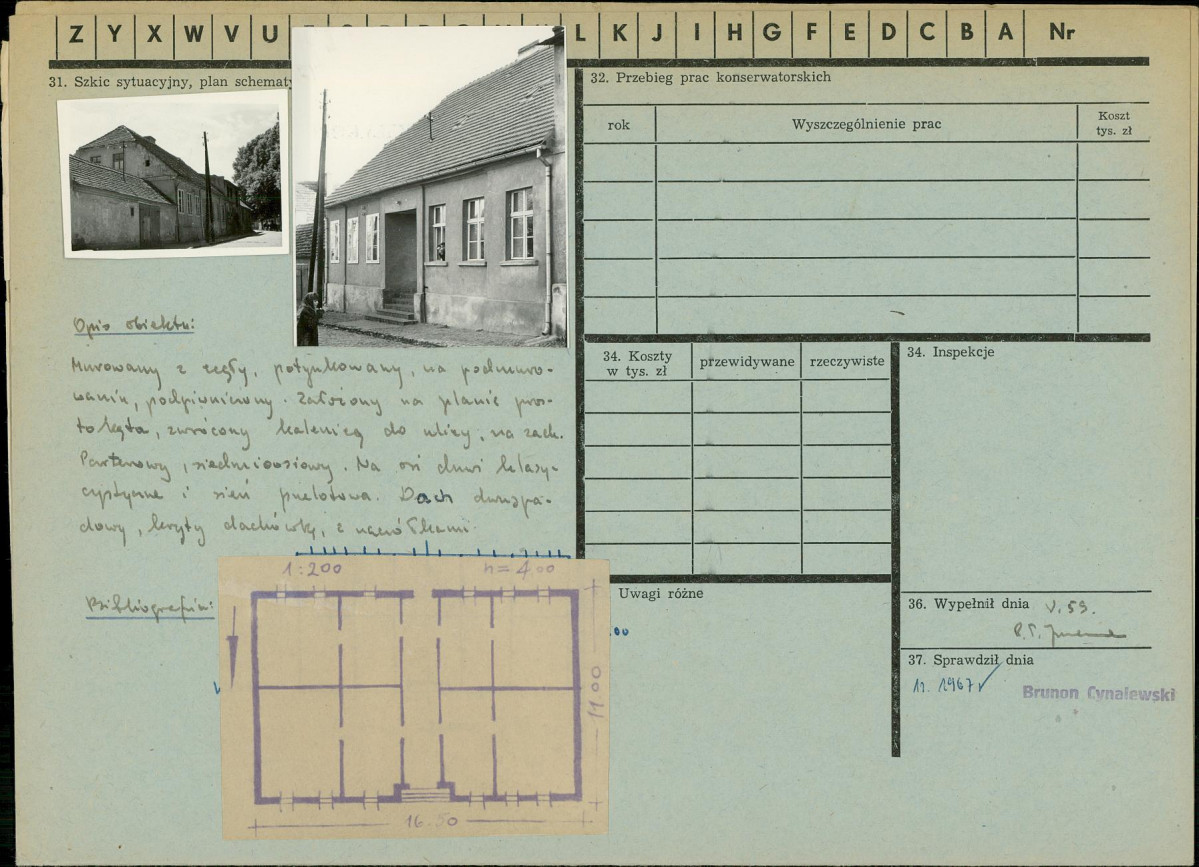 Z Y X W V U L K J I H G F E D C B A Nr
31. Szkic sytuacyjny, plan schematy
Opis obiektu:
Murowany z cegły, potynkowany, na podmuro-
waniu, podpiwniczony. Założony na planie pros-
tokąta, zwrócony kalenicą do ulicy, na zach.
Parterowy, siedmioosiowy. Na osi drzwi klasy-
cystyczne i sień przelotowa. Dach dwuspa-
dowy, kryty dachówką, z naczółkami.
Bibliografia:
1:200 h=4.00
11.00
16.50
32. Przebieg prac konserwatorskich
rok Wyszczególnienie prac Koszt
tys. zł
34. Koszty
w tys. zł przewidywane rzeczywiste
34. Inspekcje
Uwagi różne
.00
36. Wypełnił dnia V.59.
37. Sprawdził dnia
1967
Brunon Cynalewski